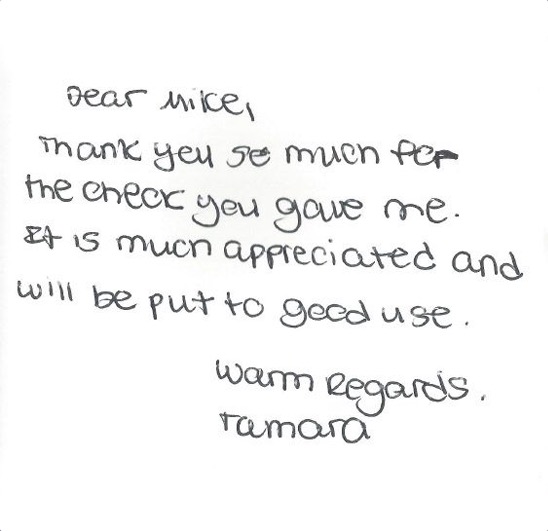 Dear Mike,
Thank you so much for
the check you gave me.
It is much appreciated and
will be put to good use.
Warm Regards.
Tamara